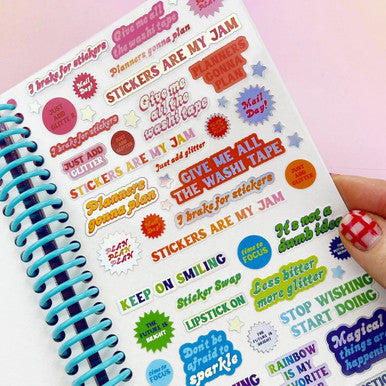 I brake for stickers
Give me all
the washi tape
Planners gonna plan
STICKERS ARE MY JAM
PLANNERS
GONNA
PLAN
JUST
ADD
GLITTER
Give me
all the
washi tape
Mail
Day!
I brake for stickers
JUST ADD
GLITTER
Just add glitter
STICKERS ARE MY JAM
GIVE ME ALL
THE WASHI TAPE
Planners
gonna plan
I brake for stickers
STICKERS ARE MY JAM
PLAN
PLAN
PLAN
It's not a
dumb idea
time to
FOCUS
KEEP ON SMILING
Sticker Swap
Less bitter
more glitter
LIPSTICK ON
STOP WISHING
START DOING
THE
FUTURE IS
BRIGHT
Don't be
afraid to
sparkle
RAINBOW
IS MY
FAVORITE
Magical
things are
happening
time to
FOCUS